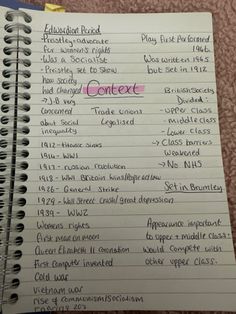 Edwardian Period
Priestley = advocate
for womens rights
- Was a Socialist
- Priestley set to show
how society
had changed
→ J.B very
concerned
about Social
inequality
Context
Trade unions
legalised
Play First Performed
1946
Was written 1945
but set in 1912
British Society
Divided:
- upper class
- middle class
- Lower class
→ Class barriers
Weakened
→ No NHS
1912 - Titanic sinks
1914 - WW1
1917 - russian revolution
1926 - General Strike
1929 - Wall Street crash/great depression
1939 - WW2
Set in Brumley
Womens rights
First man on moon
Queen Elizabeth II coronation
First computer invented
Cold war
Vietnam war
rise of communism/socialism
Appearance important
to upper + middle class.
Would compete with
other upper class.